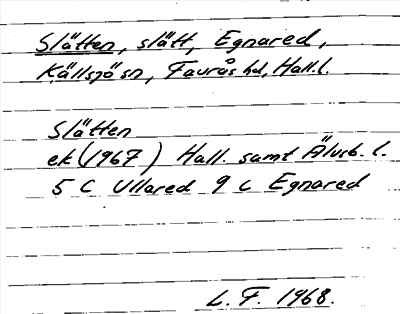 Slätten, slätt, Egnared,
Källsjö sn, Faurås hd, Hall.l.
Slätten
ek (1967) Hall. samt Älvsb. l.
5 C Ullared 9 c Egnared
L. F. 1968.